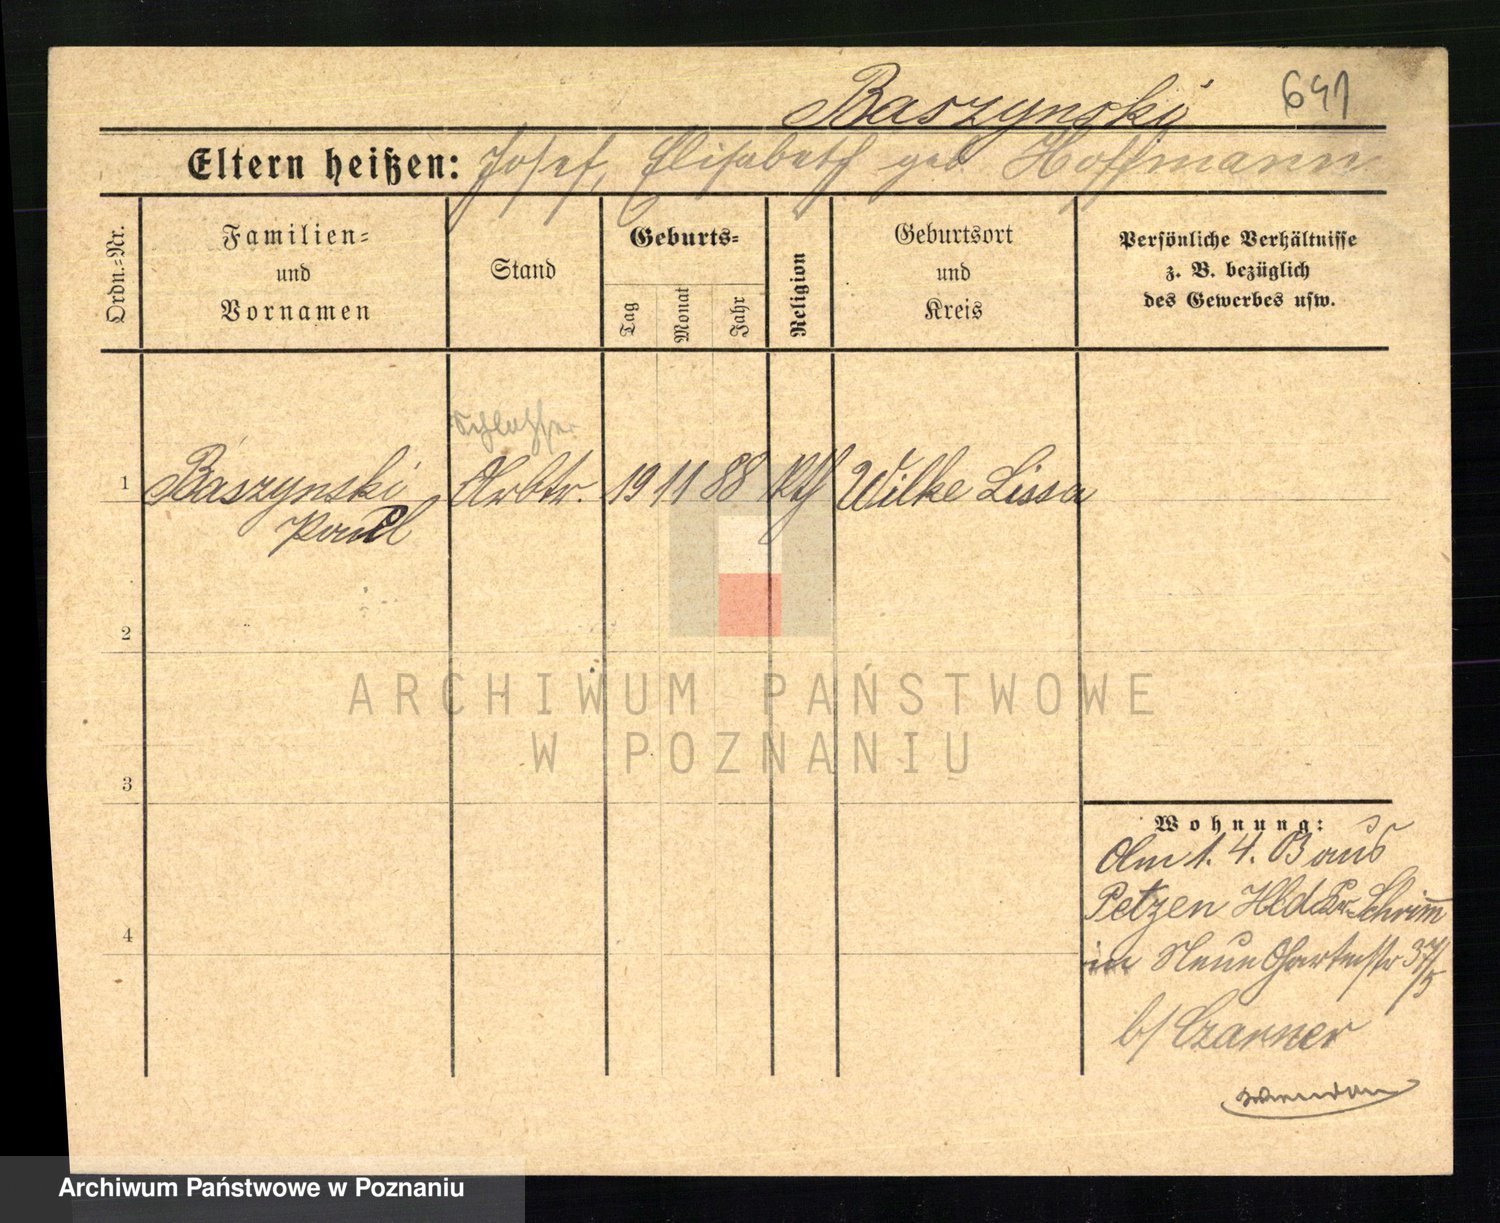 Baszynski
641
Eltern heißen: Josef, Elisabeth geb Hoffmann
Ordn.-Nr.
Familien-
und
Vornamen
Stand
Geburts-
Tag
Monat
Jahr
Religion
Geburtsort
und
Kreis
Persönliche Verhältnisse
z. B. bezüglich
des Gewerbes usw.
Schlosser
1 Baszynski Arbtr. 19 11 88 Kth Wilke Lissa
Paul
2
3
4
ARCHIWUM PAŃSTWOWE
W POZNANIU
Wohnung:
Am 1. 4. 03 aus
Petzen Hld Kr. Schrimm
in Neue Gartenstr 37/5
b/ Czarner
Archiwum Państwowe w Poznaniu